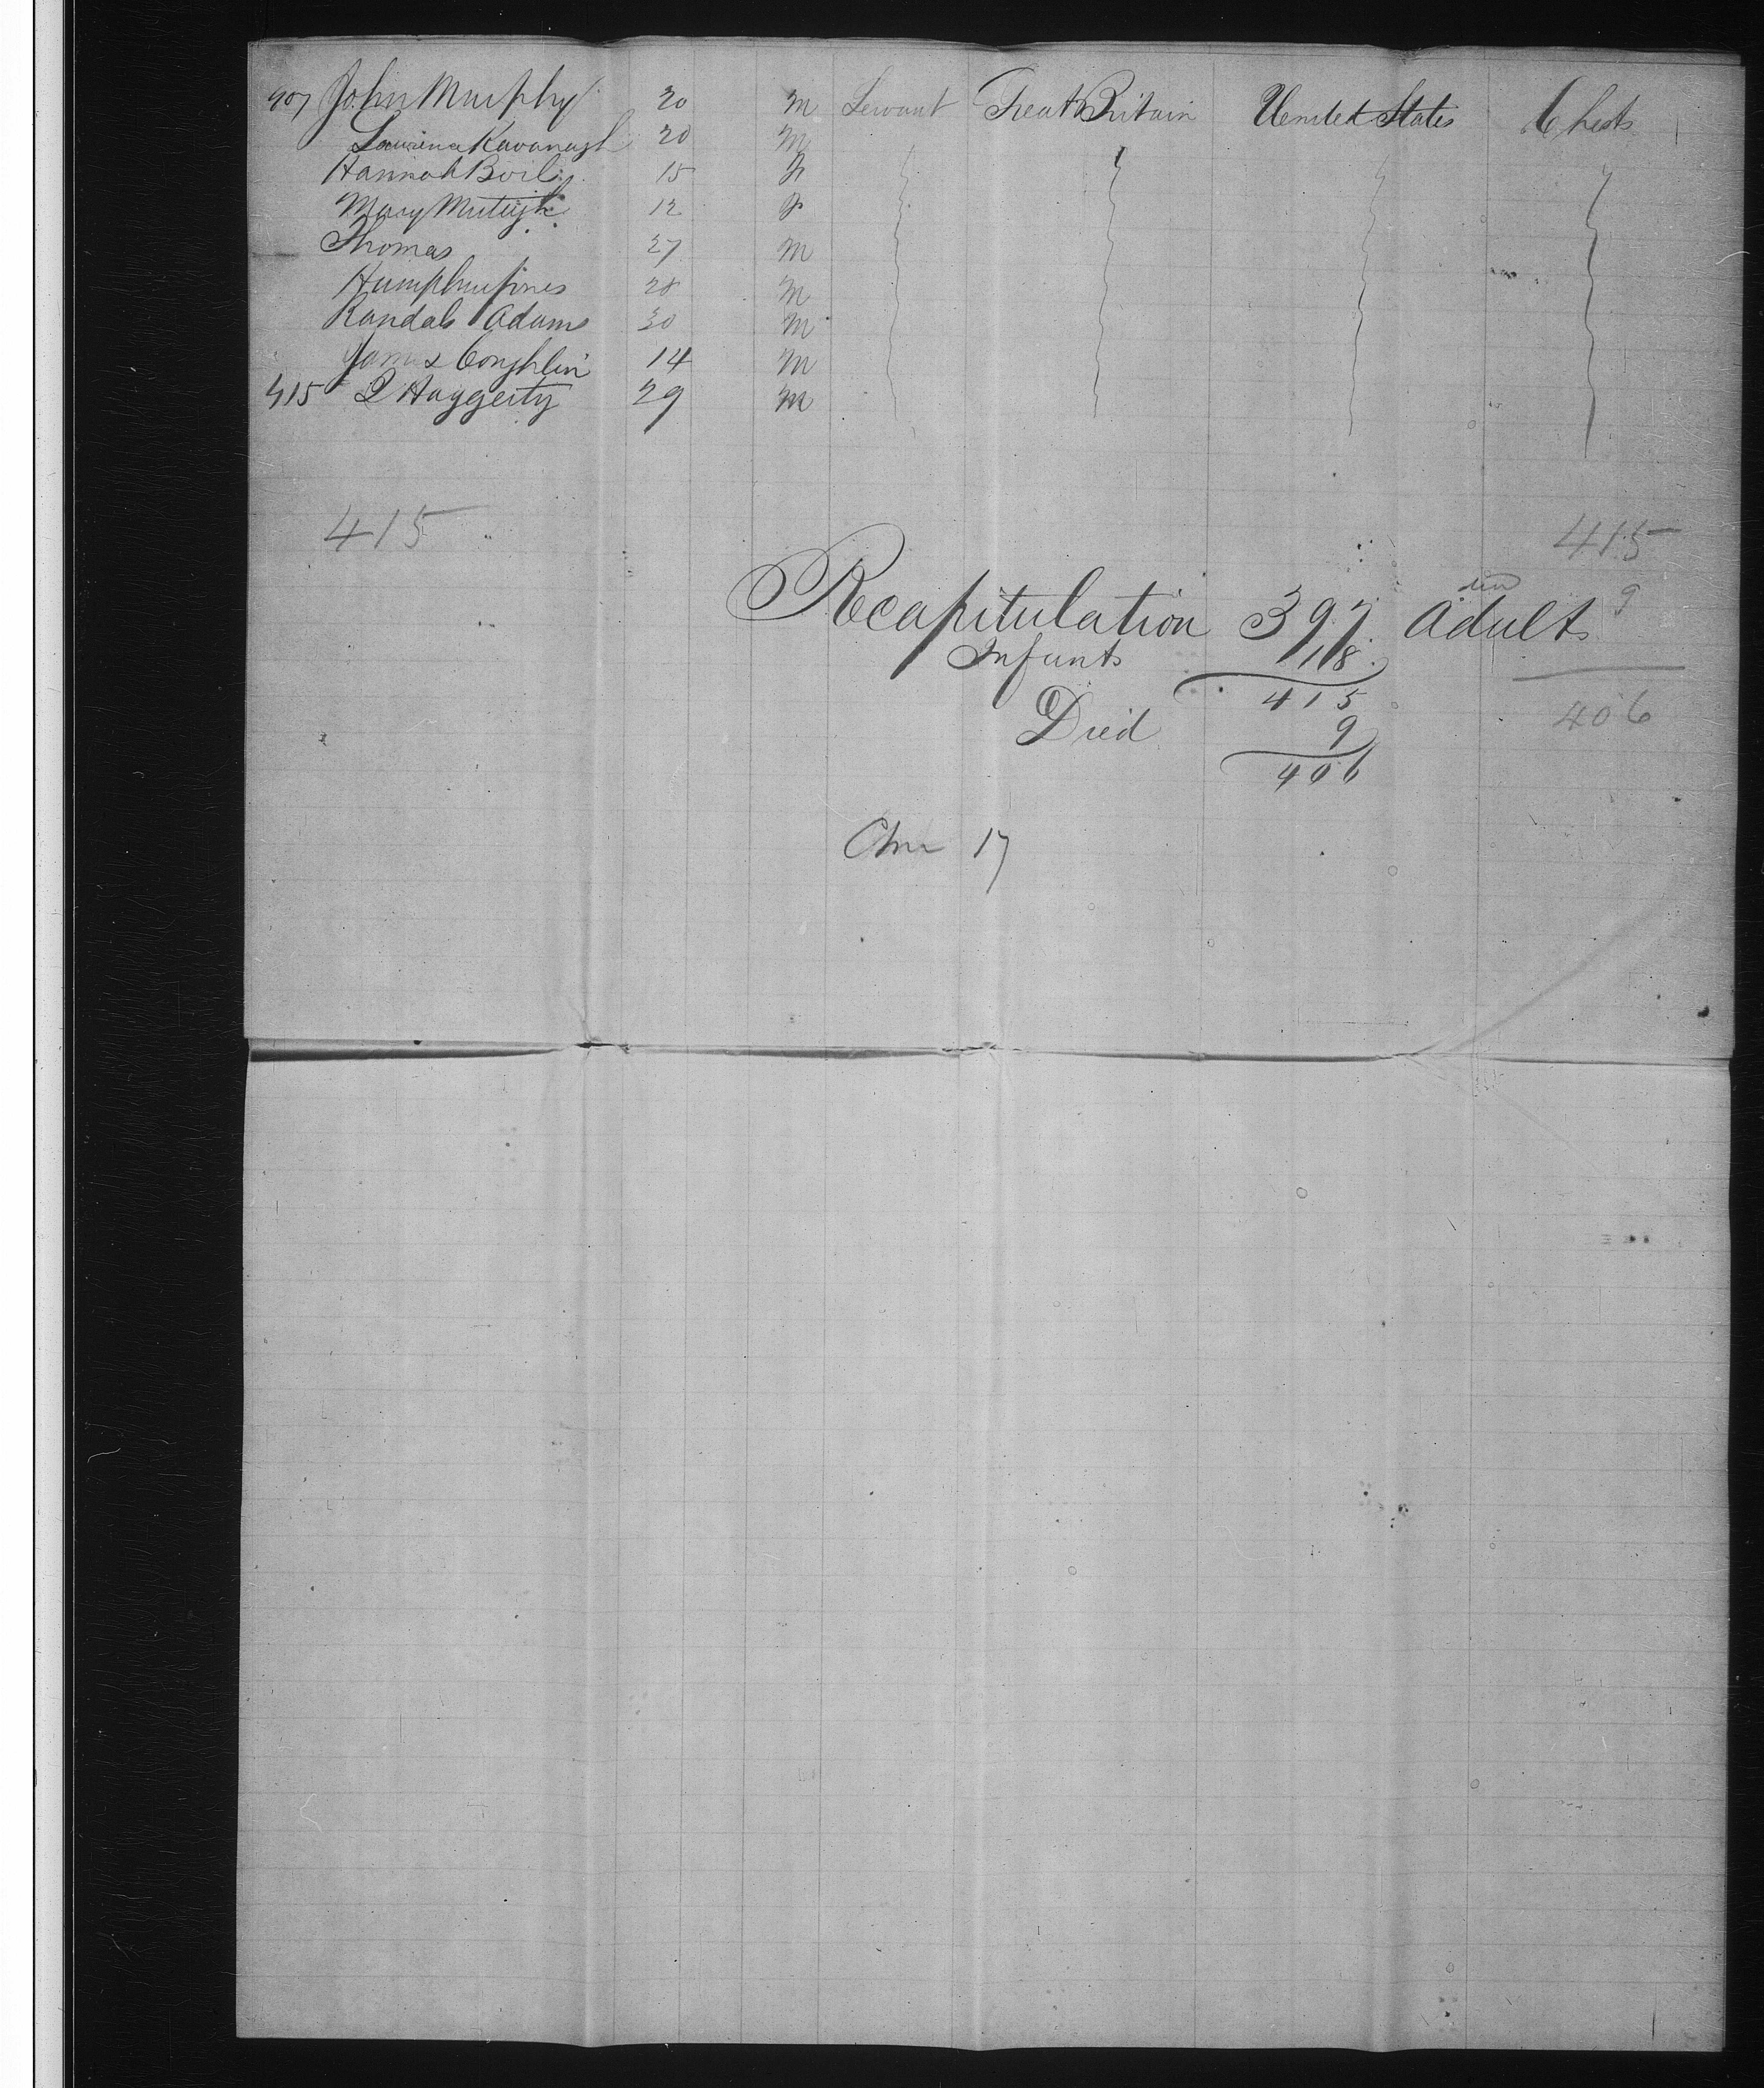 407 John Murphy 20 m Servant Great Britain United States Chests
Laurence Kavanagh 20 m
Hannah Boil 15 f
Mary 12 f
Thomas 27 m
Humphrey Jones 28 m
Randals Adams 30 m
James Coughlin 14 m
415 D Haggerty 29 m
415 415
Recapitulation 397 Adults 9
Infants 18
415
Died 9 406
406
17